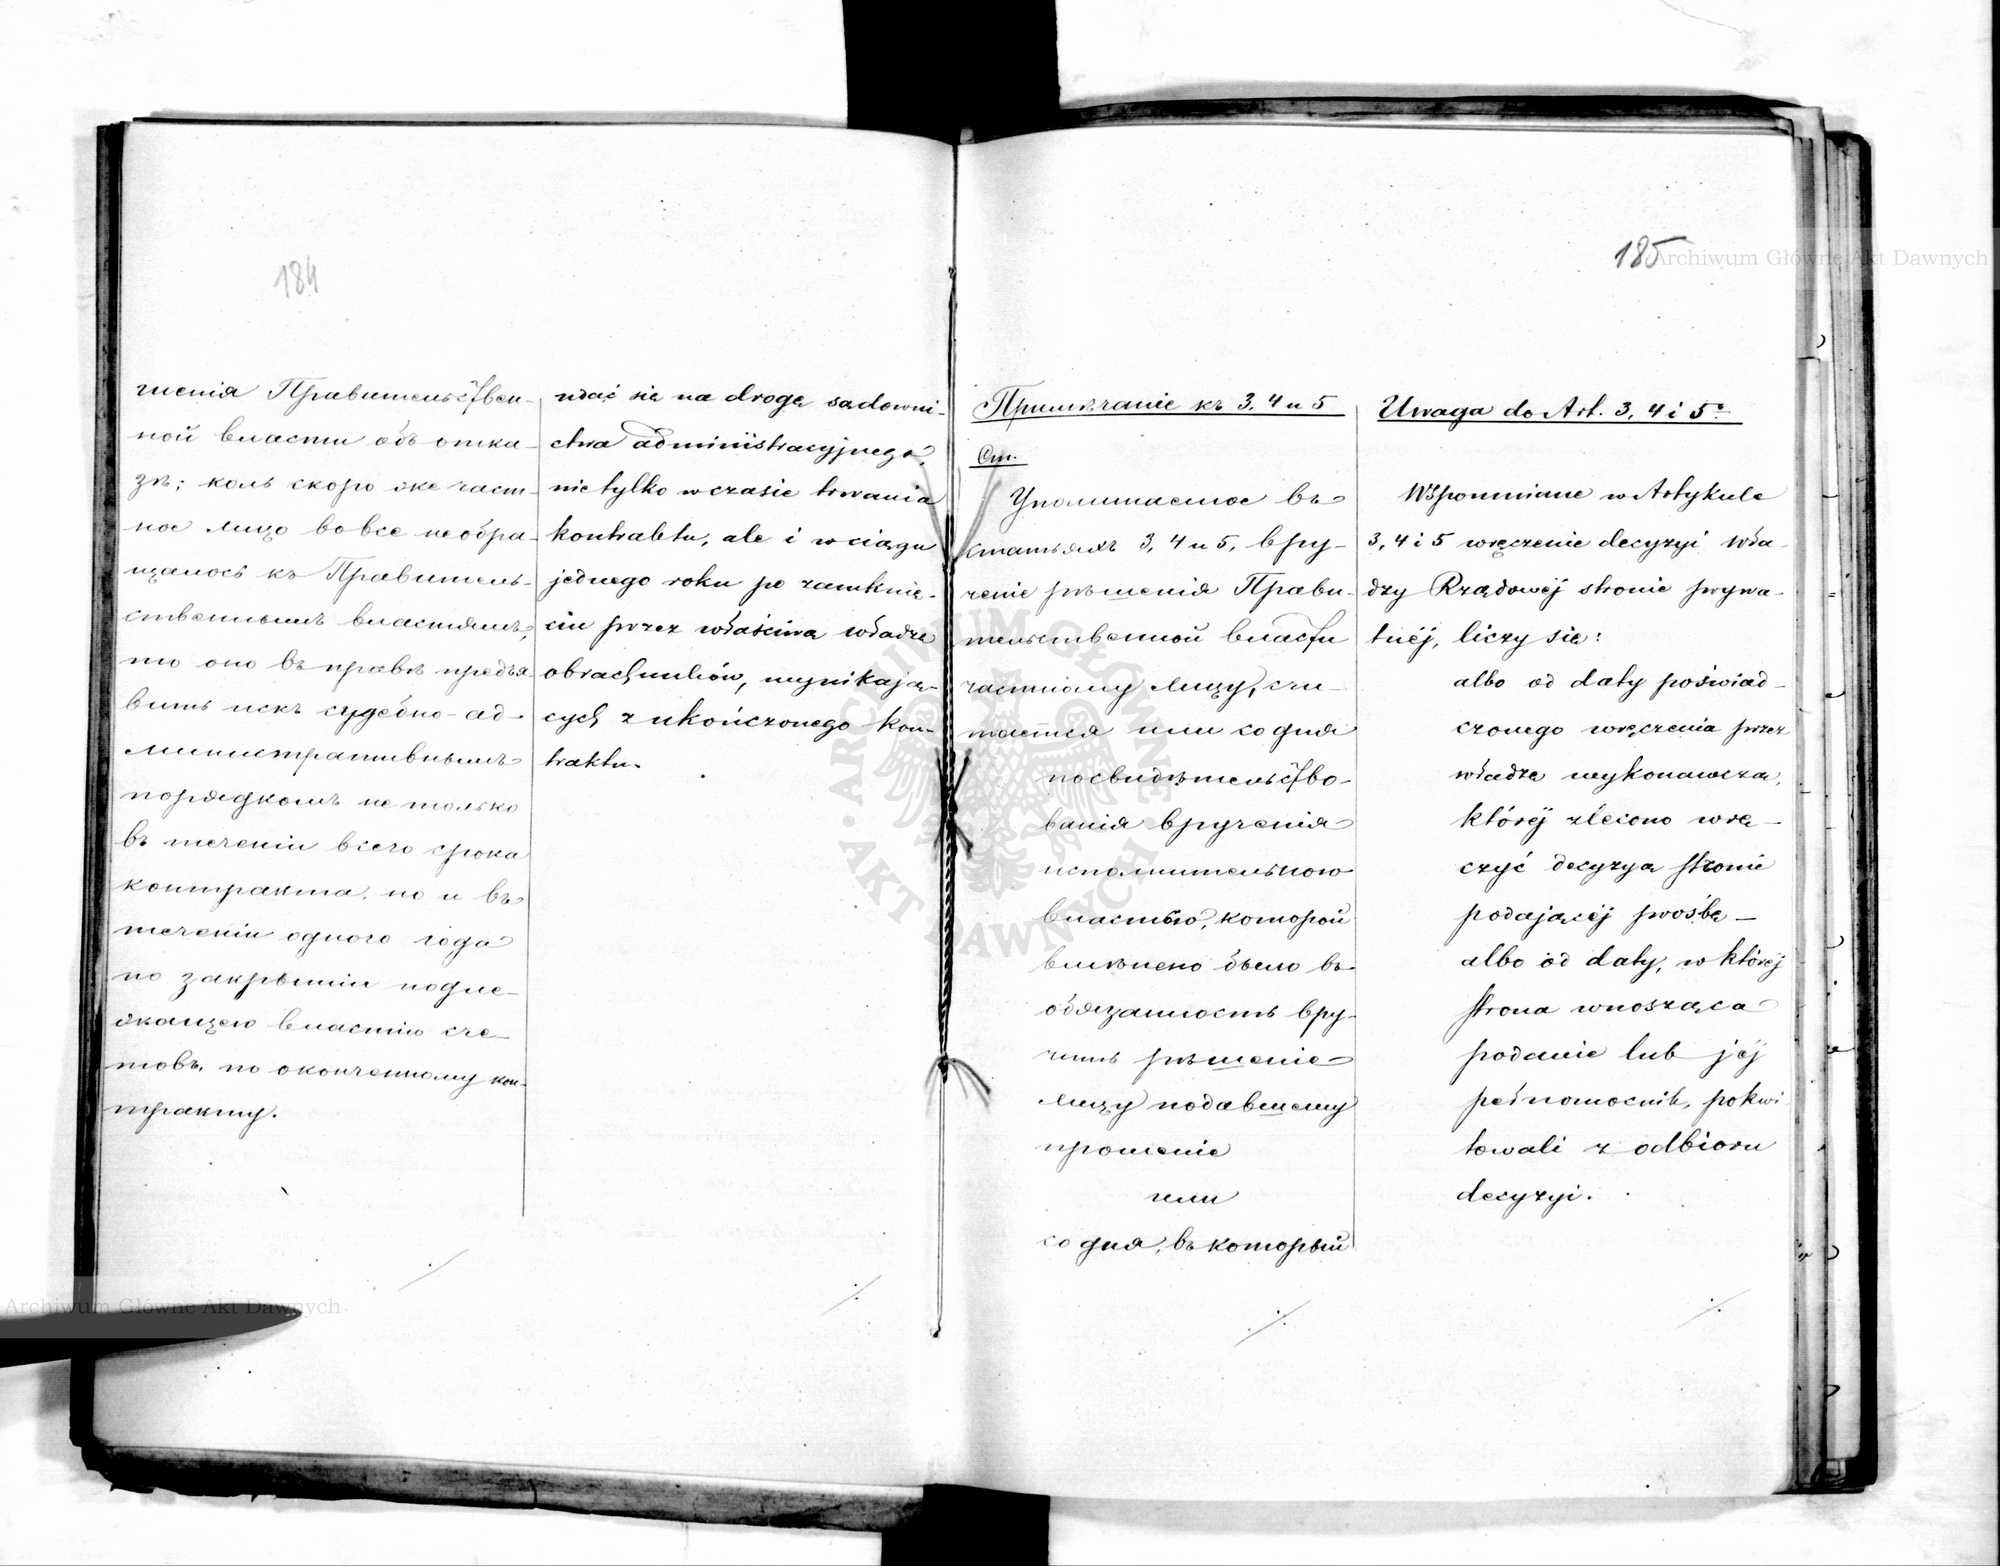 184
шенія Правительствен-
ной власти объ отка-
зѣ; коль скоро же част-
ное лицо вовсе необра-
щалось къ Правитель-
ственнымъ властямъ,
то оно въ правѣ предъя-
вить искъ судебно-ад-
министративнымъ
порядкомъ не только
въ теченіи всего срока
контракта, но и въ
теченіи одного года
по закрытіи подле-
жащею властію сче-
товъ, по оконченному кон-
тракту.
udać się na drogę sądowni-
ctwa administracyjnego,
nietylko w czasie trwania
kontraktu, ale i w ciągu
jednego roku po zamknię-
ciu przez właściwą władzę
obrachunków, wynikają-
cych z ukończonego kon-
traktu.
185
Примѣчаніе къ 3, 4 и 5
Ст.
Упоминаемое въ
статьяхъ 3, 4 и 5, вру-
ченіе рѣшенія Прави-
тельственной власти
частному лицу, счи-
тается или со дня
посвидѣтельство-
ванія врученія
исполнительною
властью, которой
вмѣнено было въ
обязанность вру-
чить рѣшеніе
лицу подавшему
прошеніе
или
со дня, въ который
Uwaga do Art. 3, 4 i 5º
Wspomniane w Artykule
3, 4 i 5 wręczenie decyzyi Wła-
dzy Rządowéj stronie prywa-
tnéj, liczy się:
albo od daty poświad-
czonego wręczenia przez
władzę wykonawczą,
któréj zlecono wrę-
czyć decyzyą stronie
podającéj prośbę-
albo od daty, w któréj
strona wnosząca
podanie lub jéj
pełnomocnik, pokwi
towali z odbioru
decyzyi.
Archiwum Główne Akt Dawnych
Archiwum Główne Akt Dawnych
ARCHIWUM GŁÓWNE AKT DAWNYCH